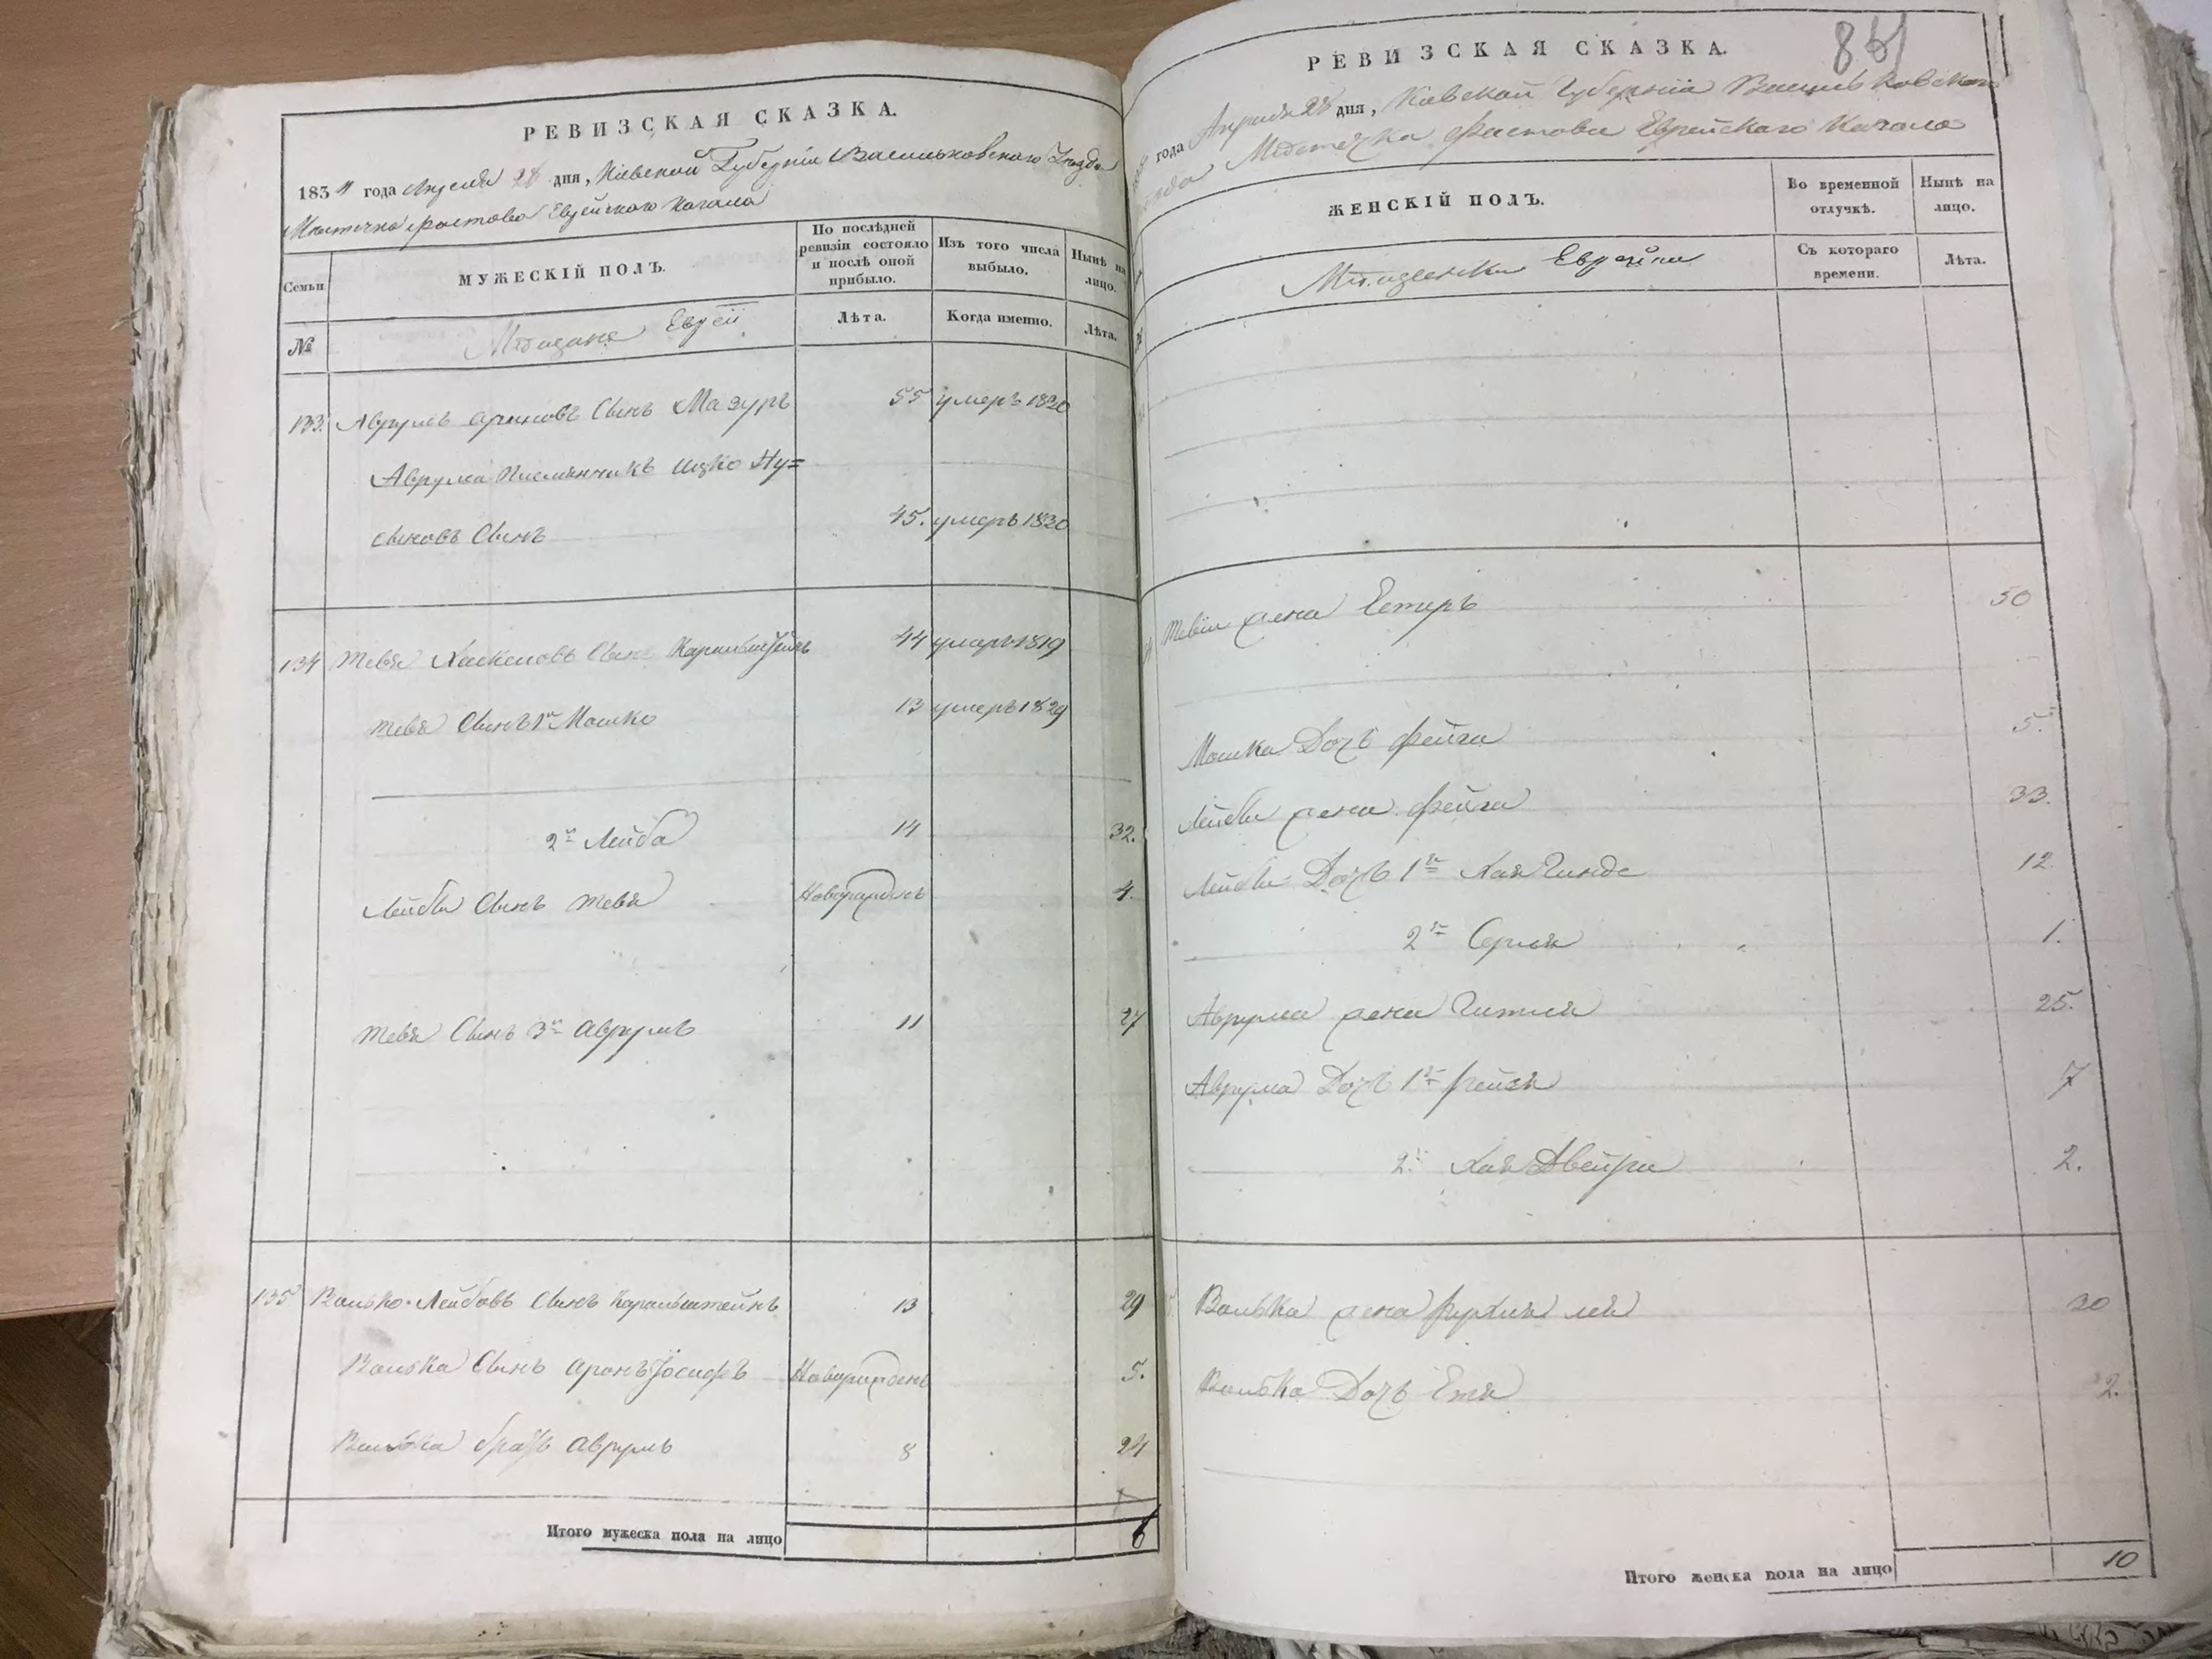 РЕВИЗСКАЯ СКАЗКА.
1834 года Апреля 28 дня, Кіевской Губерніи Васильковскаго Уезда
Местечка Фастова Еврейскаго Кагала
Семьи
МУЖЕСКІЙ ПОЛЪ.
По послѣдней ревизіи состояло и послѣ оной прибыло.
Изъ того числа выбыло.
Нынѣ на лицо.
№
Мѣщане Евреи
Лѣта.
Когда именно.
Лѣта.
133. Аврумъ Ароновъ Сынъ Мазуръ 55 умеръ 1830
Аврума Племянникъ Ицко Ну=
сыновъ Сынъ 45. умеръ 1830
134 Тевя Сынъ 44 умеръ 1819
Тевя Сынъ 1й Мошко 13 умеръ 1829
2й Лейба 14 32.
Лейбы Сынъ Тевя Новорожденъ 4.
Тевя Сынъ 3й Аврумъ 11 27
135 Волько Лейбовъ Сынъ Каральштейнъ 13 29
Волька Сынъ Аронъ Іосифъ Новорожденъ 5.
Волька братъ Аврумъ 8 24
Итого мужеска пола на лицо 6
РЕВИЗСКАЯ СКАЗКА.
года Апреля 28 дня, Кіевской Губерніи Васильковскаго
Мѣстечка Фастова Еврейскаго Кагала
ЖЕНСКІЙ ПОЛЪ.
Во временной отлучкѣ.
Нынѣ на лицо.
Мѣщанки Еврейки
Съ котораго времени.
Лѣта.
Тевіи жена Естеръ 50
Мошка Дочь Фейга 5.
Лейбы жена Фейга 33.
Лейбы Дочь 1я Хая Гинде 12.
2я Сурля 1.
Аврума жена Гитля 25.
Аврума Дочь 1я Рейзя 7
2я Хая Двейра 2.
Волька жена Рухля Лея 30
Волька Дочь Етя 2.
Итого женска пола на лицо 10